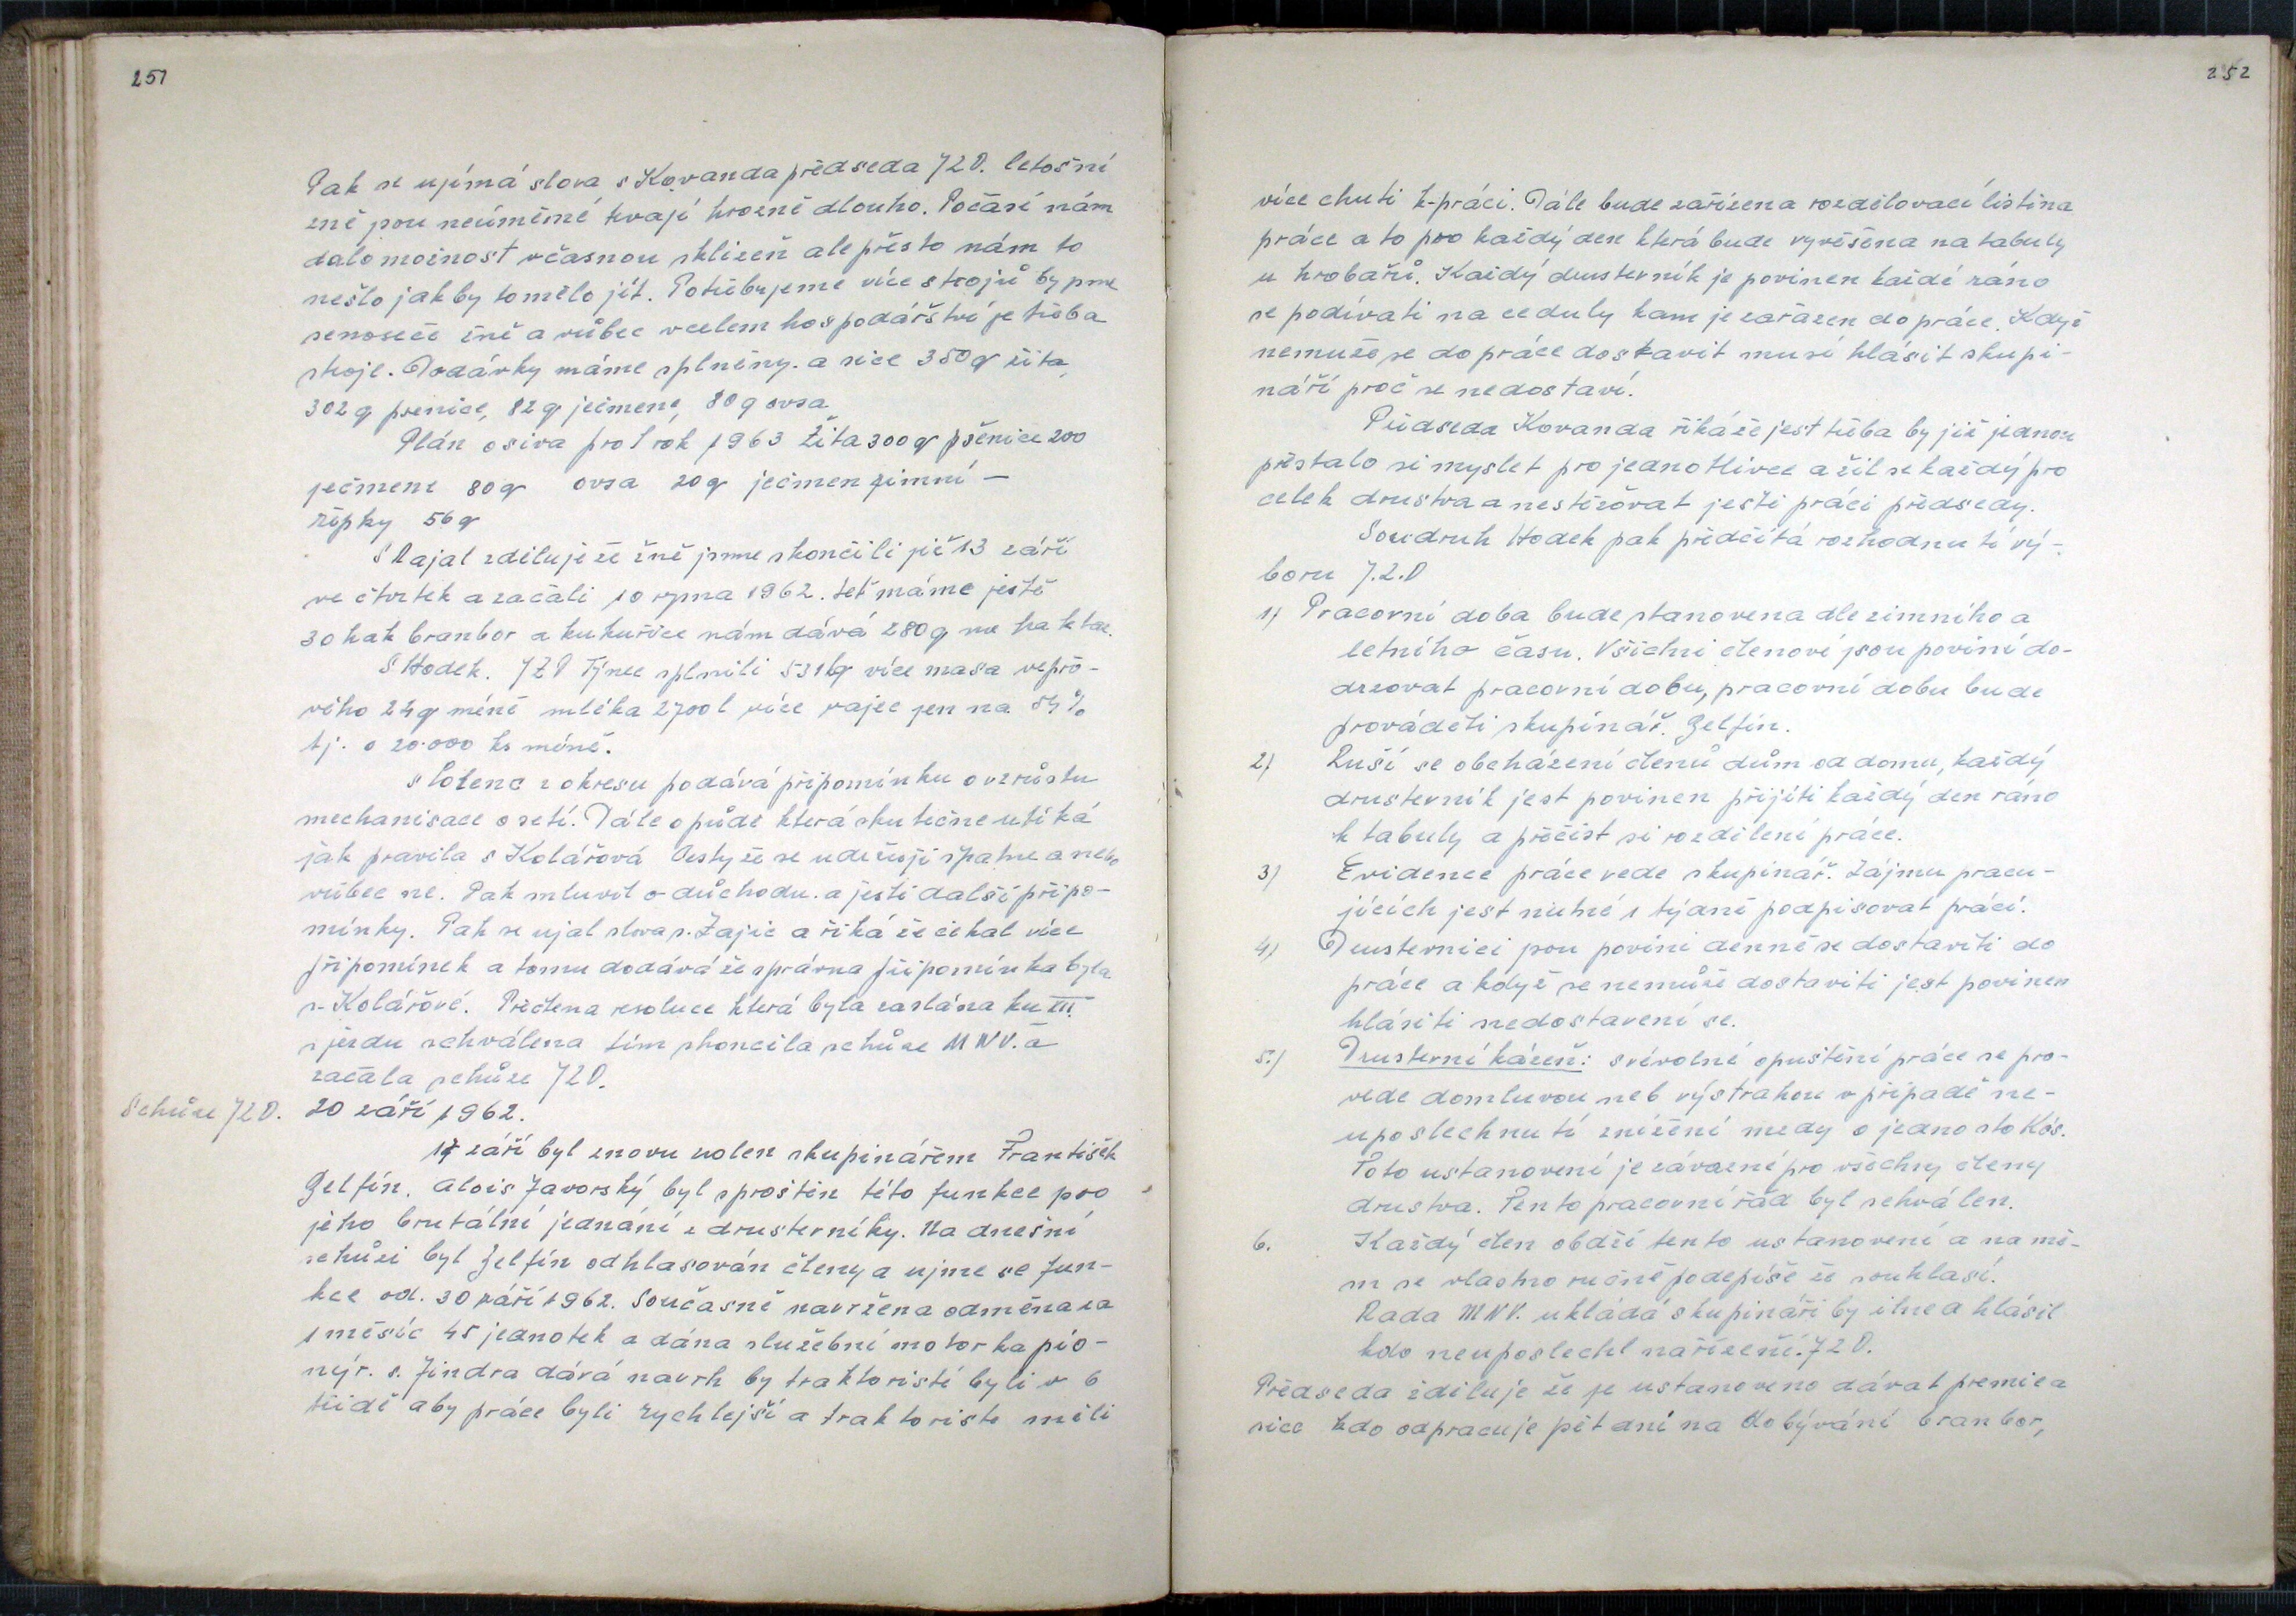 251
Pak se ujímá slova s Kovanda předseda JZD. letošní
žně jsou neúměrné trvají hrozně dlouho. Počasí nám
dalo možnost včasnou sklizeň ale přesto nám to
nešlo jak by to mělo jít. Potřebujeme více strojů by jsme
senoseče žně a vůbec v celem hospodářství je třeba
stroje. Dodávky máme splněny. a sice 350 q žita,
302 q pšenice, 82 q ječmene, 80 q ovsa
Plán osiva pro rok 1963 Žita 300 q pšenice 200
ječmene 80 q ovsa 20 q ječmen zimní —
řepky 56 q
S Rajal zděluje že žně jsme skončili již 13 září
ve čtvrtek a začali 10 srpna 1962. teť máme ještě
30 hak brambor a kukuřice nám dává 280 q na haktar.
S Hodek. JZD Týnec splnili 531 kg více masa vepřo-
vého 24 q méně mléka 2700 l více vajec jen na 84 %
tj. o 20.000 ks méně.
s Lorenc z okresu podává připomínku o vzrůstu
mechanisace osetí. Dále o půdě která skutečne utíká
jak pravila s Kolářová Cesty že se udežují špatne a nebo
vůbec ne. Pak mluvil o důchodu. a ještě další připo-
mínky. Pak se ujal slova s. Zajíc a říká že čekal více
připomínek a tomu dodává že správna připomínka byla
s. Kolářové. Přečtena resoluce která byla zaslána ku III.
sjezdu schválena tím skončila schůze MNV. a
začala schůze JZD.
Schůze JZD. 20 září 1962.
17 září byl znovu zvolen skupinářem František
Gelfín. Alois Javorský byl sproštěn této funkce pro
jeho brutální jednání z drusterníky. Na dnešní
schůzi byl Gelfín odhlasován členy a ujme se fun-
kce od. 30 září 1962. Současně navržena odměna za
1 měsíc 45 jednotek a dána služební motorka pio-
nýr. s. Jindra dává navrh by traktoristé byli v 6
třídě aby práce byli rychlejší a traktoriste měli
252
více chuti k-práci. Dále bude zařízena rozdělovací listina
práce a to pro každý den která bude vyvěšena na tabuly
u hrobařů. Každý drusterník je povinen každé ráno
se podívati na ceduly kam je zařazen do práce. Když
nemuže se do práce dostavit musí hlásit skupi-
náři proč se nedostaví.
Předseda Kovanda řiká že jest třeba by již jednou
přestalo si myslet pro jednotlivce a žil se každý pro
celek drustva a nestěžovat ješti práci předsedy.
Soudruh Hodek pak předčítá rozhodnutí vý-
boru J.Z.D
1) Pracovní doba bude stanovena dle zimního a
letního času. Všichni členové jsou poviní do-
drzovat pracovní dobu, pracovní dobu bude
prováděti skupinář. Gelfín.
2) Ruší se obcházení členů dům od domu, každý
drusterník jest povinen přijíti každý den ráno
k tabuly a přečíst si rozdělení práce.
3) Evidence práce vede skupinář. Zájmu pracu-
jících jest nutné 1 týdně podpisovat práci.
4) Drusterníci jsou poviní denně se dostaviti do
práce a když se nemůže dostaviti jest povinen
hlásiti nedostavení se.
5.) Drusterní kázeň: svévolné opuštění práce se pro-
vede domluvou neb výstrahou v případě ne-
uposlechnutí snížení mzdy o jedno sto Kčs.
Toto ustanovení je závazné pro všechny členy
drustva. Tento pracovní řád byl schválen.
6. Každý člen obdží tento ustanovení a na ně-
m se vlastnoručně podepíše že souhlasí.
Rada MNV. ukládá skupináři by ihned hlásil
kdo neuposlechl nařízení. JZD.
Předseda zděluje že je ustanoveno dávat premie a
sice kdo odpracuje pět dní na dobývání brambor,